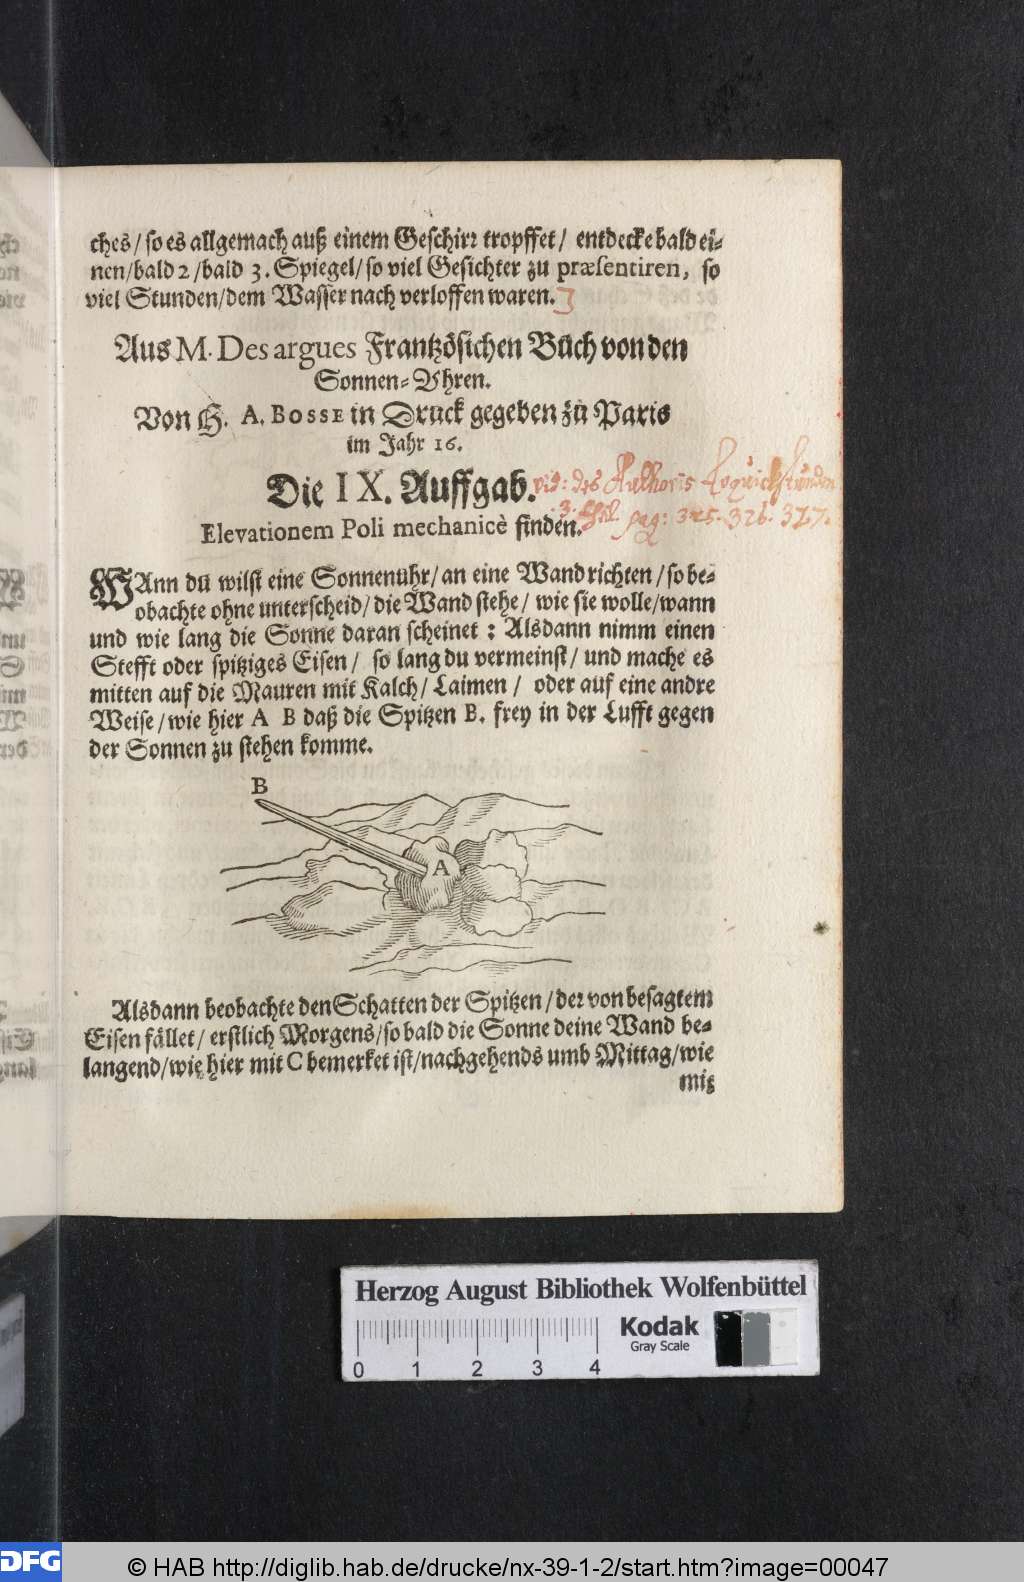 ches / so es allgemach auß einem Geschirr tropffet / entdecke bald ei-
nen / bald 2 / bald 3. Spiegel / so viel Gesichter zu præsentiren, so
viel Stunden / dem Wasser nach verloffen waren.
Aus M. Des argues Frantzösichen Buch von den
Sonnen-Uhren.
Von H. A. BOSSE in Druck gegeben zu Paris
im Jahr 16.
Die IX. Auffgab.
vid: des Authoris Erquickstunden
3. Theil. pag: 325. 326. 327.
Elevationem Poli mechanicè finden.
WAnn du wilst eine Sonnenuhr / an eine Wand richten / so be-
obachte ohne unterscheid / die Wand stehe / wie sie wolle / wann
und wie lang die Sonne daran scheinet : Alsdann nimm einen
Stefft oder spitziges Eisen / so lang du vermeinst / und mache es
mitten auf die Mauren mit Kalch / Laimen / oder auf eine andre
Weise / wie hier A B daß die Spitzen B. frey in der Lufft gegen
der Sonnen zu stehen komme.
B
A
Alsdann beobachte den Schatten der Spitzen / der von besagtem
Eisen fället / erstlich Morgens / so bald die Sonne deine Wand be-
langend / wie hier mit C bemerket ist / nachgehends umb Mittag / wie
mit
Herzog August Bibliothek Wolfenbüttel
Kodak
Gray Scale
0 1 2 3 4
DFG © HAB http://diglib.hab.de/drucke/nx-39-1-2/start.htm?image=00047